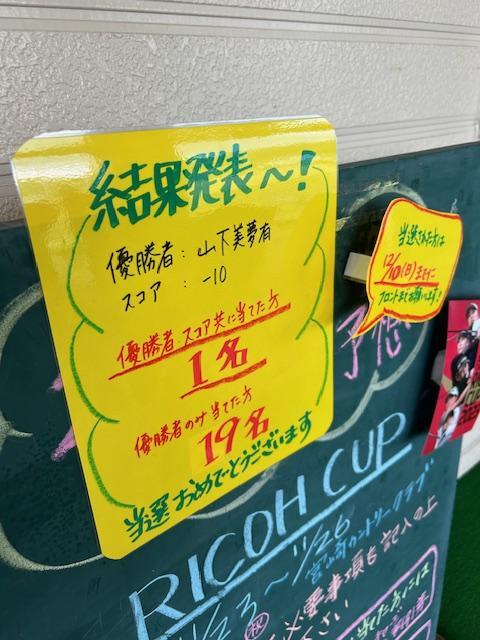 結果発表～！
優勝者：山下美夢有
スコア：-10
優勝者、スコア共に当てた方
1名
優勝者のみ当てた方
19名
当選おめでとうございます
当選された方は
12/10(日)までに
フロントまでお願いします！
予想
RICOH CUP
～11/26
宮崎カントリークラブ
必要事項を記入の上
ださい
当てた方には